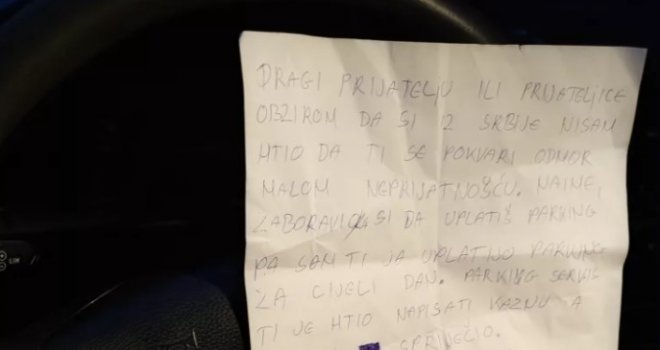 DRAGI PRIJATELJU ILI PRIJATELJICE
OBZIROM DA SI IZ SRBIJE NISAM
HTIO DA TI SE POKVARI ODMOR
MALOM NEPRIJATNOŠĆU. NAIME,
ZABORAVILA SI DA UPLATIŠ PARKING
PA SAM TI JA UPLATIO PARKING
ZA CIJELI DAN. PARKING SERVIS
TI JE HTIO NAPISATI KAZNU A
SPRIJEČIO.